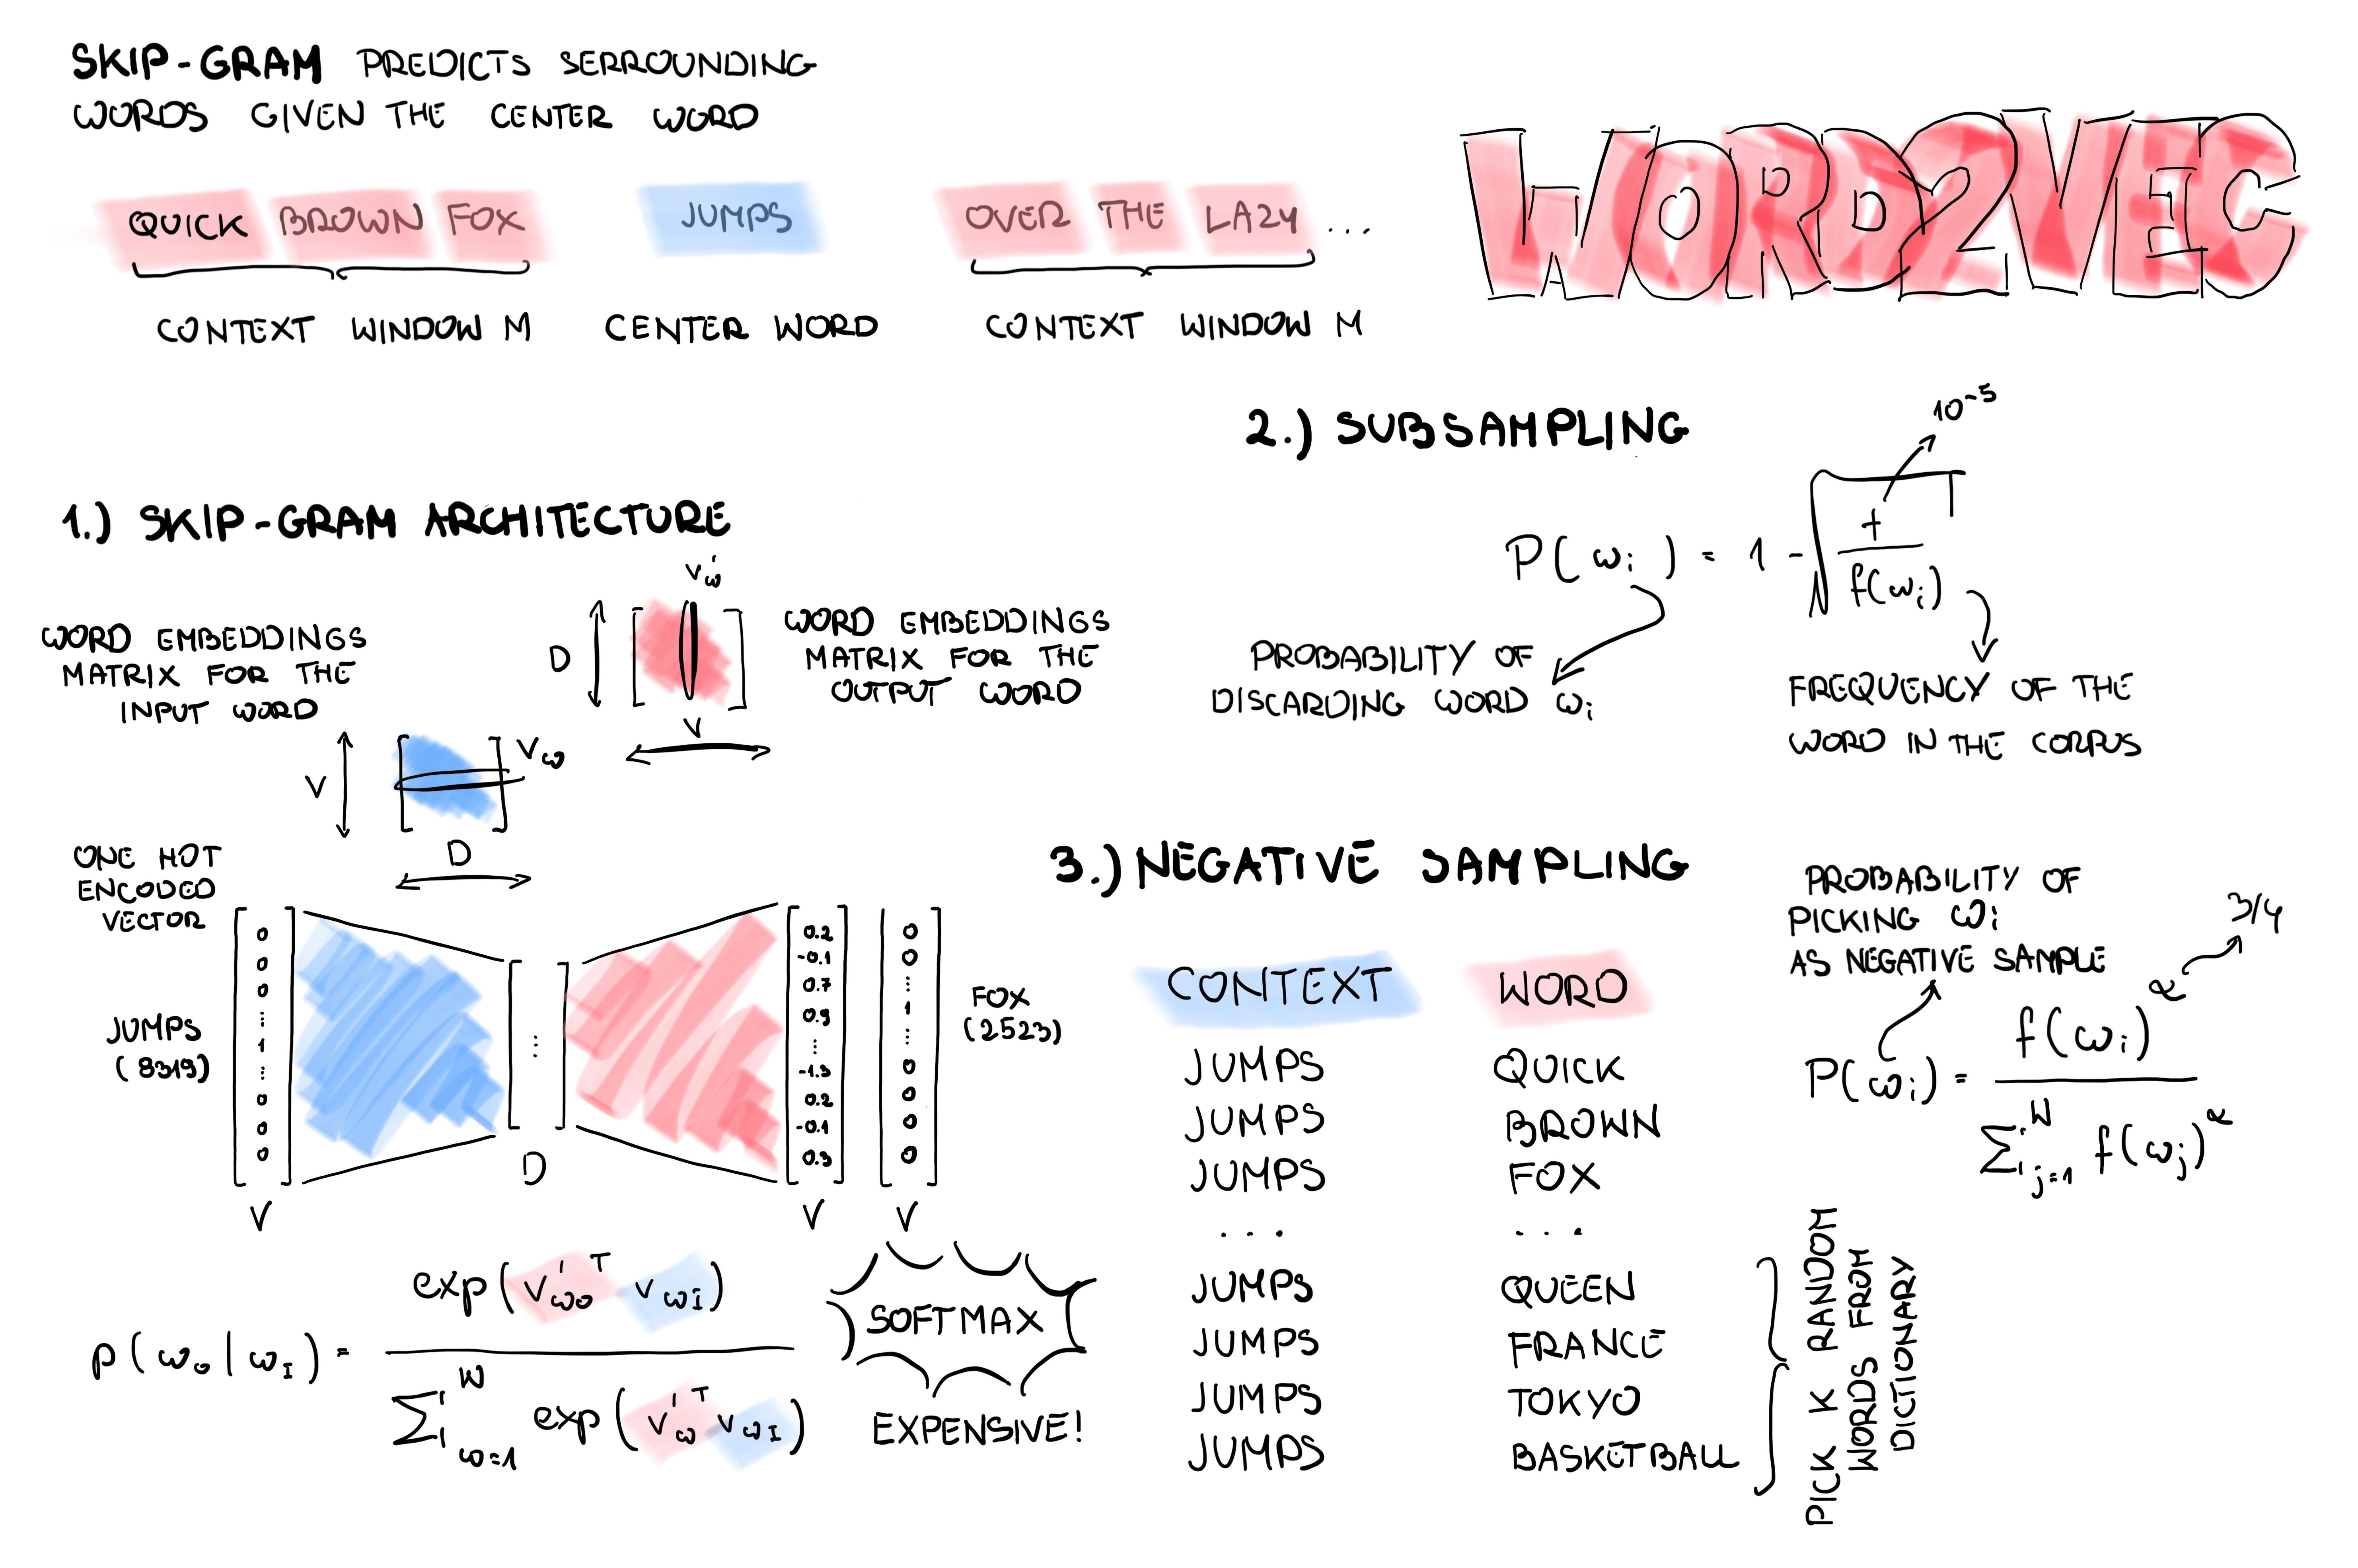 SKIP-GRAM PREDICTS SERROUNDING
WORDS GIVEN THE CENTER WORD
WORD2VEC
QUICK BROWN FOX JUMPS OVER THE LAZY ...
CONTEXT WINDOW M CENTER WORD CONTEXT WINDOW M
1.) SKIP-GRAM ARCHITECTURE
WORD EMBEDDINGS
MATRIX FOR THE
INPUT WORD
V
D
v_ω
v'_ω
D
V
WORD EMBEDDINGS
MATRIX FOR THE
OUTPUT WORD
ONE HOT
ENCODED
VECTOR
JUMPS
(8319)
0
0
0
...
1
...
0
0
0
V
...
D
0.2
-0.1
0.7
0.9
...
-1.3
0.2
-0.1
0.3
V
0
0
...
1
...
0
0
0
0
V
FOX
(2523)
p(ω_O | ω_I) = exp(v'_ωO^T v_ωI) / Σ_{ω=1}^W exp(v'_ω^T v_ωI)
SOFTMAX
EXPENSIVE!
2.) SUBSAMPLING
10^-5
P(ω_i) = 1 - √(t / f(ω_i))
PROBABILITY OF
DISCARDING WORD ω_i
FREQUENCY OF THE
WORD IN THE CORPUS
3.) NEGATIVE SAMPLING
CONTEXT WORD
JUMPS QUICK
JUMPS BROWN
JUMPS FOX
... ...
JUMPS QUEEN
JUMPS FRANCE
JUMPS TOKYO
JUMPS BASKETBALL
PICK K RANDOM
WORDS FROM
DICTIONARY
PROBABILITY OF
PICKING ω_i
AS NEGATIVE SAMPLE
3/4
P(ω_i) = f(ω_i)^α / Σ_{j=1}^W f(ω_j)^α